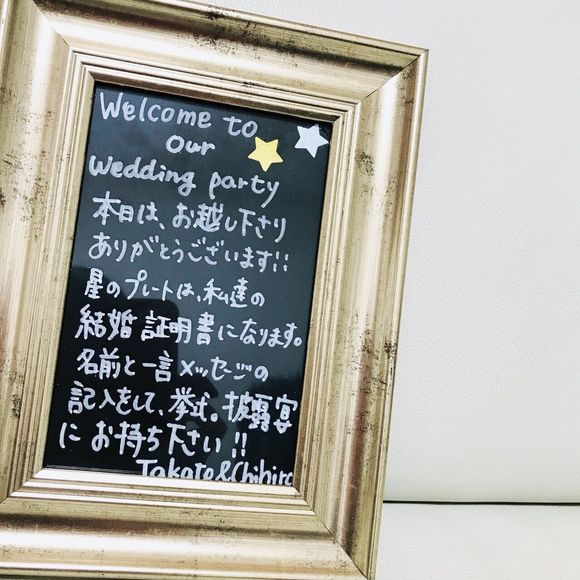 Welcome to
our
wedding party
本日は、お越し下さり
ありがとうございます!!
星のプレートは、私達の
結婚証明書になります。
名前と一言メッセージの
記入をして、挙式。披露宴
にお持ち下さい!!
Takato&Chihiro